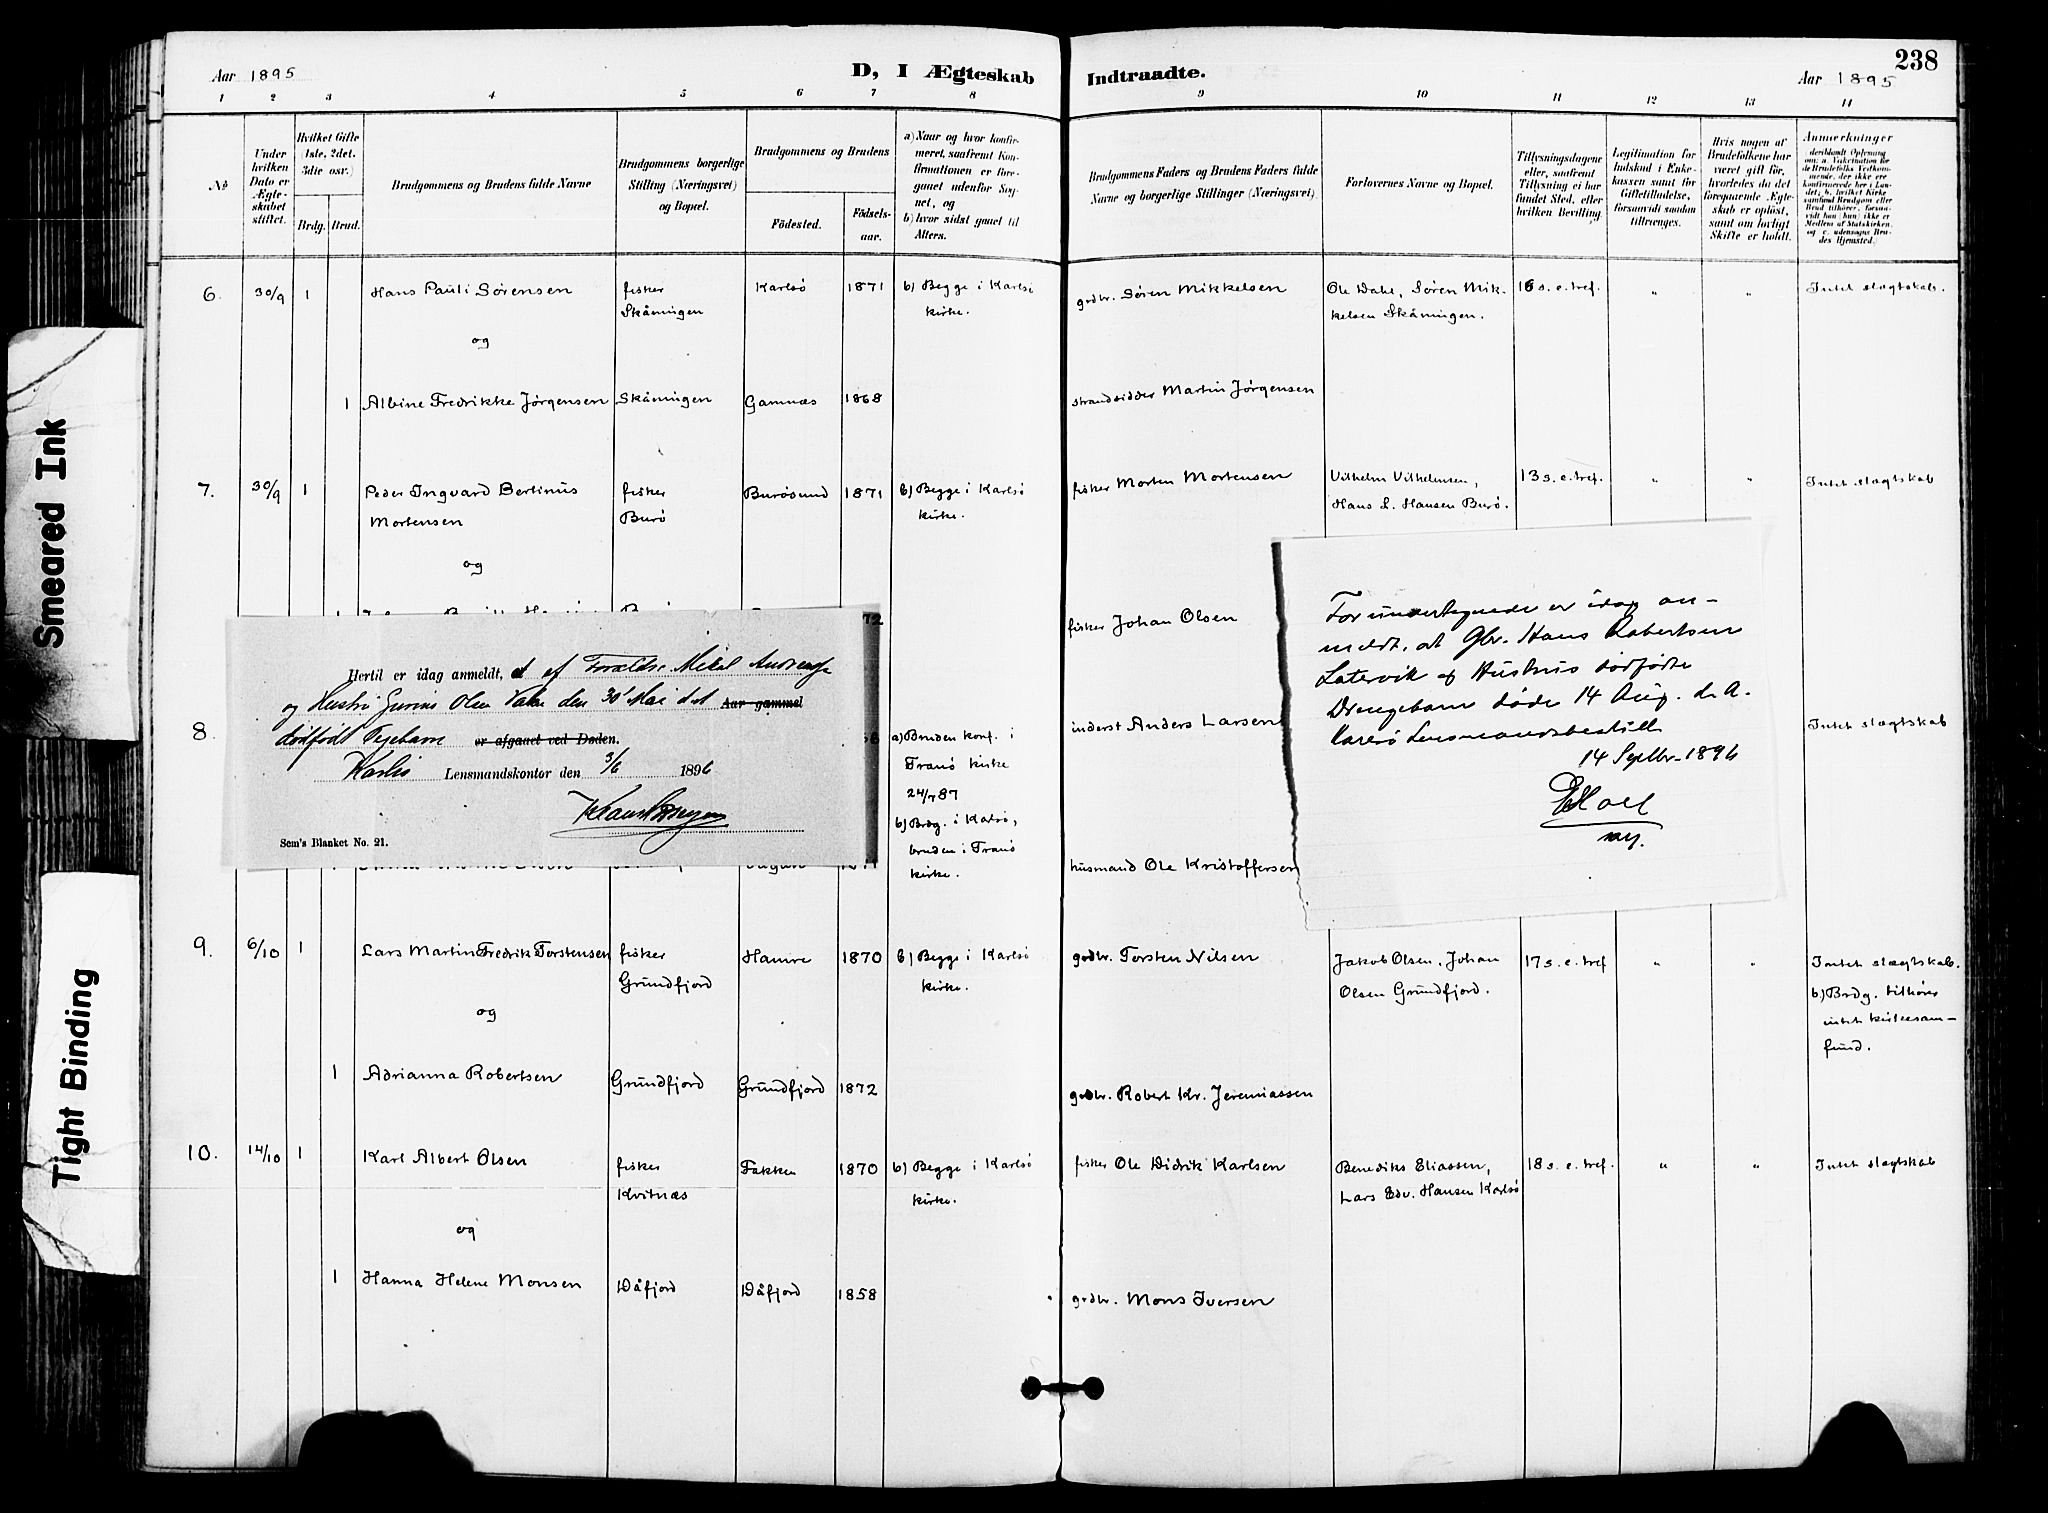 Smeared Ink
Tight Binding
Aar 1895
D, I Ægteskab
Indtraadte.
238
Aar 1895
1 2 3 4 5 6 7 8 9 10 11 12 13 14
No
Under
hvilken
Dato er
Ægte-
skabet
stiftet.
Hvilket Gifte
(1ste, 2det,
3die osv.)
Brdg. Brud.
Brudgommens og Brudens fulde Navne
Brudgommens borgerlige
Stilling (Næringsvei)
og Bopæl.
Brudgommens og Brudens
Födested.
Födsels-
aar.
a) Naar og hvor konfir-
meret, saafremt Kon-
firmationen er fore-
gaaet udenfor Sog-
net, og
b) hvor sidst gaaet til
Alters.
Brudgommens Faders og Brudens Faders fulde
Navne og borgerlige Stillinger (Næringsvei).
Forlovernes Navne og Bopæl.
Tillysningsdagene
eller, saafremt
Tillysning ei har
fundet Sted, efter
hvilken Bevilling.
Legitimation for
Indskud i Enke-
kassen samt for
Giftetilladelse,
forsaavidt saadan
tiltrænges.
Hvis nogen af
Brudefolkene har
været gift før,
hvorledes da det
foregaaende Ægte-
skab er oplöst,
samt om lovligt
Skifte er holdt.
Anmerkninger
deriblandt Oplysning
om: a. Vakcination for
de Brudefolks Vedkom-
mende, der ikke ere
konfirmerede her i Lan-
det; b. hvilket Kirke
samfund Brudgom eller
Brud tilhörer, forsaa-
vidt han (hun) ikke er
Medlem af Statskirken,
og c. udensogns Bru-
des Hjemsted.)
6. 30/9 1 Hans Pauli Sörensen fisker Karlsö 1871 b) Begge i Karlsö
Skåningen kirke.
gdbr. Sören Mikkelsen Ole Dahl, Sören Mik- 16 s. e. tref. " " Intet slægtskab.
kelsen Skåningen.
og
1 Albine Fredrikke Jörgensen Skåningen Gamnæs 1868
strandsidder Martin Jörgensen
7. 30/9 1 Peder Ingvard Bertinus fisker Burösund 1871 b) Begge i Karlsö
Mortensen Burö kirke.
fisker Morten Mortensen Vilhelm Vilhelmsen, 13 s. e. tref. " " Intet slægtskab
Hans L. Hansen Burö.
og
72
fisker Johan Olsen
Hertil er idag anmeldt, at af Forældre Mikal
og Hustru Olsen den 30' Mai det Aar gammel
dødfødt Pigebarn er afgaaet ved Døden.
Karlsö Lensmandskontor den 3/6 1896
Sem's Blanket No. 21.
For undertegnede er idag an-
meldt, at Gbr. Hans Robertsen
Latervik og Hustrus dødfødte
Drengebarn døde 14 Aug. d. A.
Karlsö Lensmandsbestill
14 Septbr. 1896
8.
a) Bruden konf. i
Tranö kirke
24/7 87
b) Brdg. i Kalsö,
bruden i Tranö
kirke.
inderst Anders Larsen Intet slægtskab
husmand Ole Kristoffersen
9. 6/10 1 Lars Martin Fredrik Torstensen fisker Hamre 1870 b) Begge i Karlsö
Grundfjord kirke.
gdbr. Torsten Nilsen Jakob Olsen, Johan 17 s. e. tref " " Intet slægtskab.
Olsen Grundfjord. b) Brdg. tilhörer
intet kirkesam-
fund.
og
1 Adrianna Robertsen Grundfjord Grundfjord 1872
gdbr. Robert Kr. Jeremiassen
10. 14/10 1 Karl Albert Olsen fisker Fakken 1870 b) Begge i Karlsö
Kvitnæs kirke.
fisker Ole Didrik Karlsen Benediks Eliassen, 18 s. e. tref. " " Intet slægtskab
Lars Edv. Hansen Karlsö
og
1 Hanna Helene Monsen Dåfjord Dåfjord 1858
gdbr. Mons Iversen